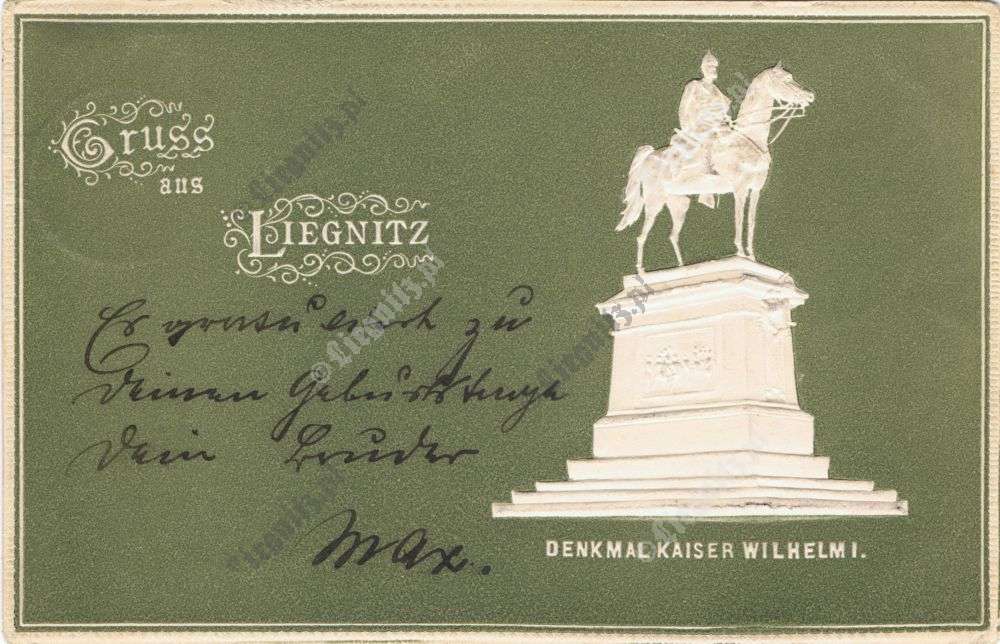 Gruss
aus
LIEGNITZ
Es gratuliert zu
Deinen Geburtstage
Dein Bruder
Max.
DENKMAL KAISER WILHELM I.
© Liegnitz.pl